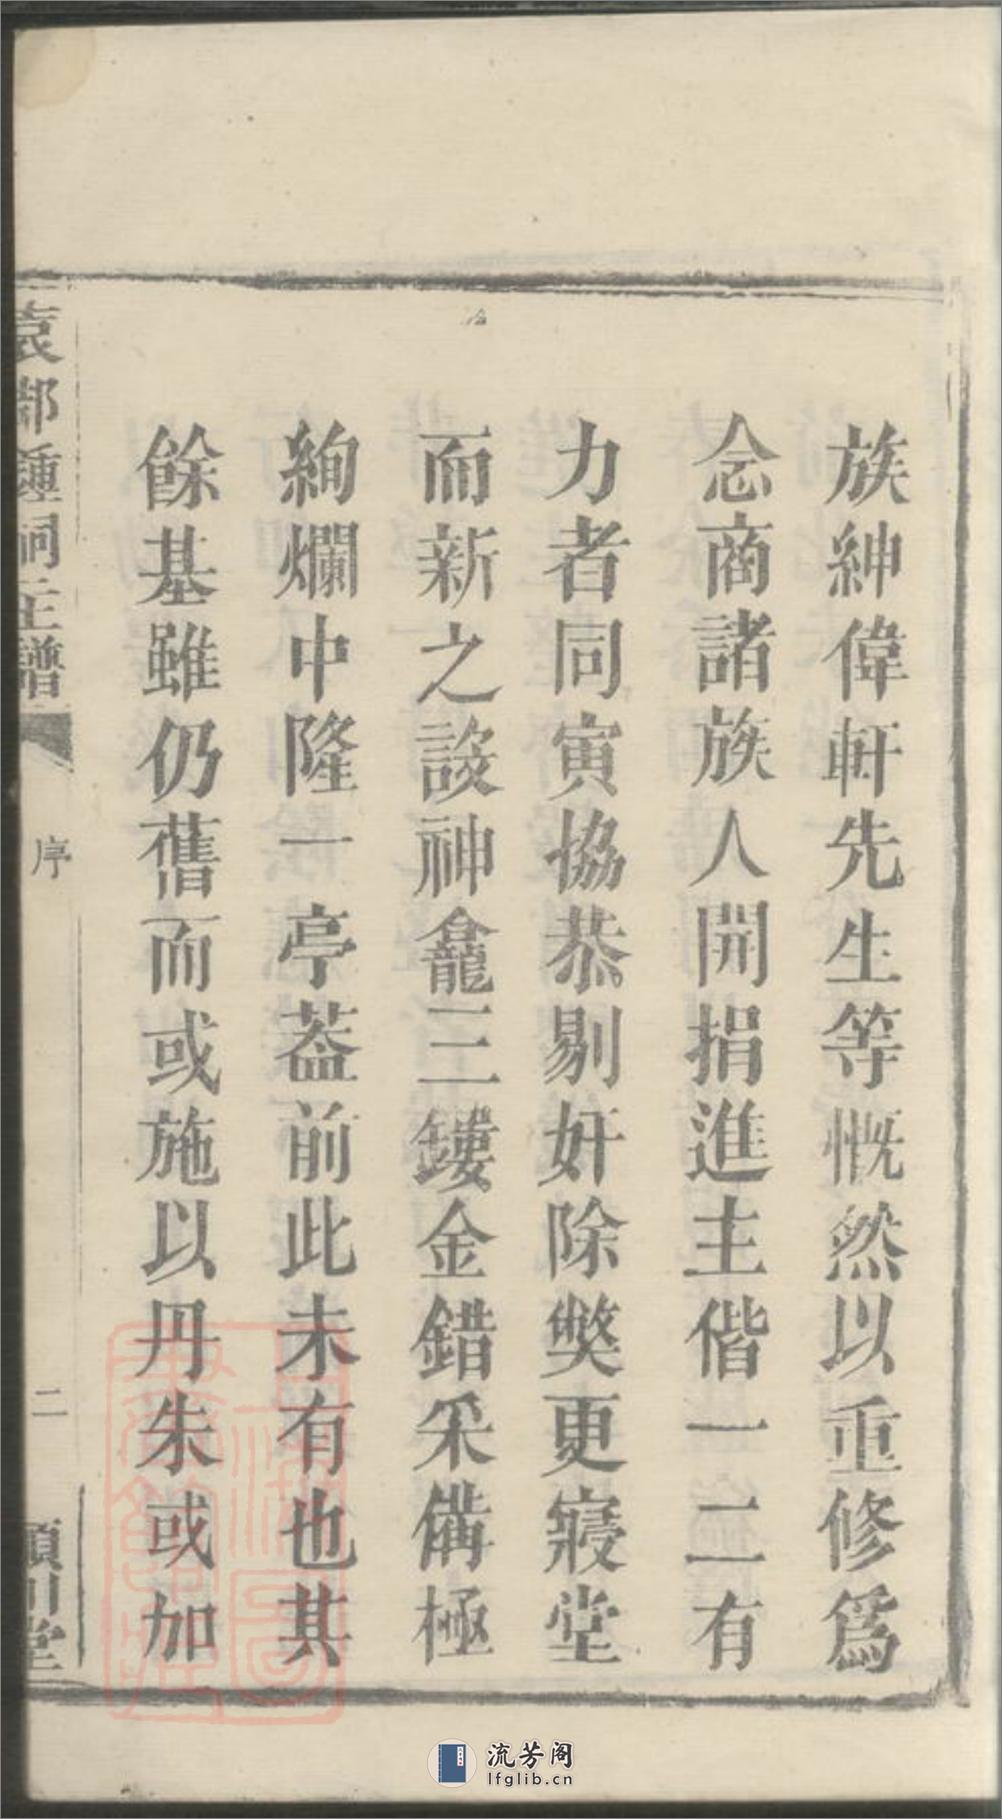 族紳偉軒先生等慨然以重修爲
念商諸族人開捐進主偕一二有
力者同寅協恭剔奸除獘更寢堂
而新之設神龕三鏤金錯采備極
絢爛中隆一亭葢前此未有也其
餘基雖仍舊而或施以丹朱或加
袁郡鍾祠主譜
序
二
潁川堂
流芳阁
lfglib.cn